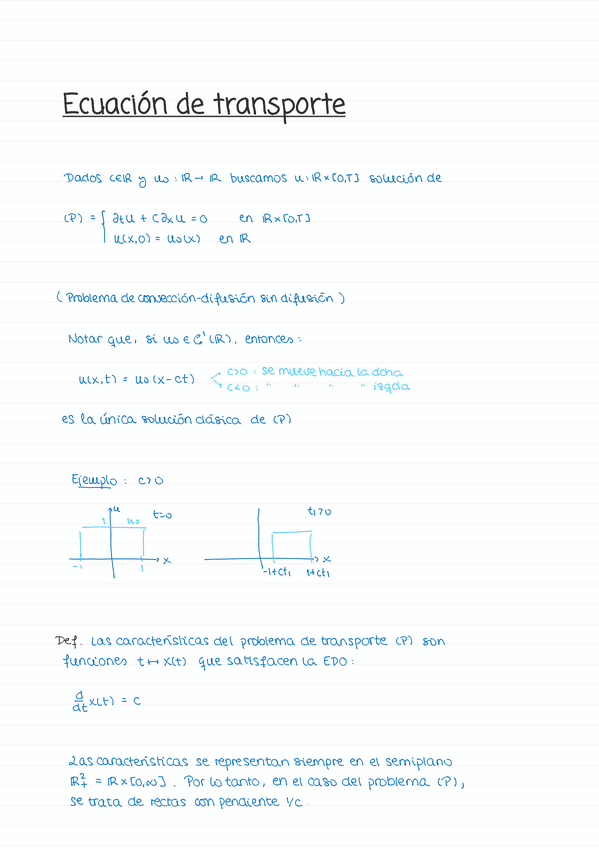 Ecuación de transporte
Dados c∈ℝ y u₀ : ℝ → ℝ buscamos u: ℝ×[0,T] solución de
(P) = { ∂tu + c∂xu = 0 en ℝ×[0,T]
u(x,0) = u₀(x) en ℝ
( Problema de convección-difusión sin difusión )
Notar que, si u₀ ∈ C¹(ℝ), entonces :
u(x,t) = u₀(x-ct)
c>0 : se mueve hacia la dcha
c<0 : " " " " izqda
es la única solución clásica de (P)
Ejemplo : c>0
u t=0 t₁>0
1 u₀
-1 1 x
-1+ct₁ 1+ct₁ x
Def. Las características del problema de transporte (P) son
funciones t ↦ x(t) que satisfacen la EDO :
d/dt x(t) = c
Las características se representan siempre en el semiplano
ℝ²₊ = ℝ×[0,∞] . Por lo tanto, en el caso del problema (P),
se trata de rectas con pendiente 1/c .